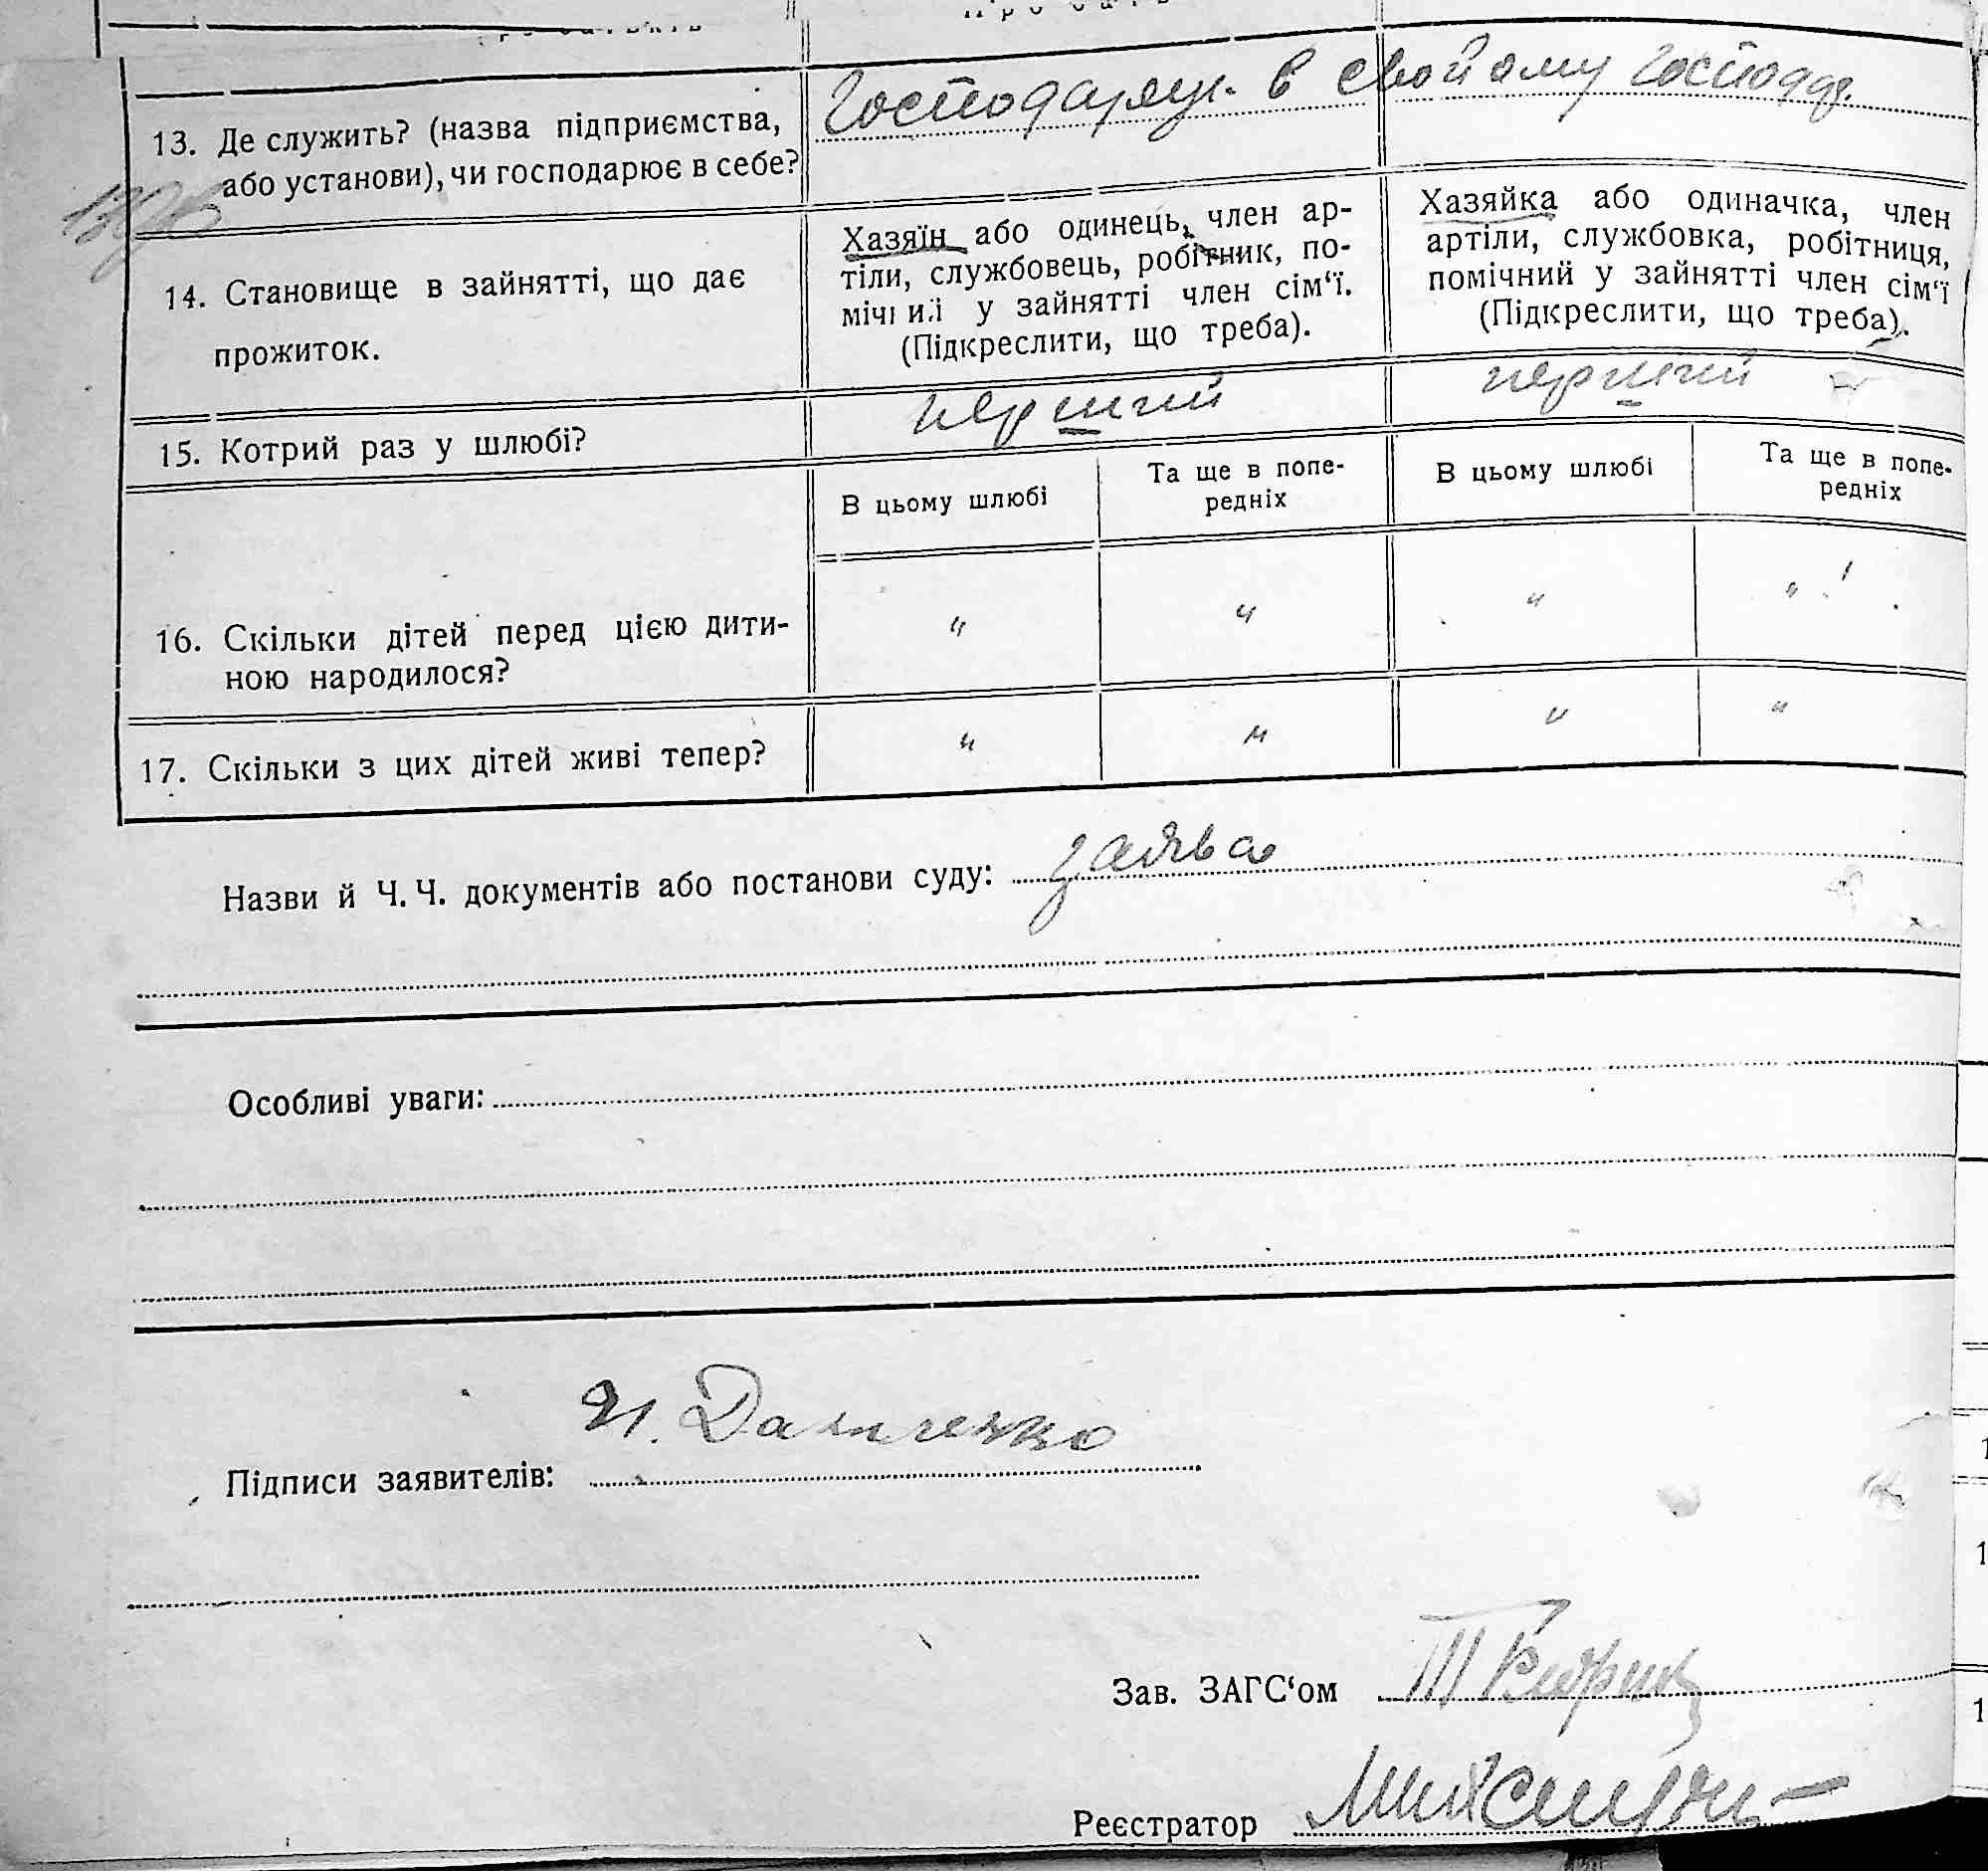 13. Де служить? (назва підприємства,
або установи), чи господарює в себе?
Господарює в свойому господ.
14. Становище в зайнятті, що дає
прожиток.
Хазяїн або одинець, член ар-
тіли, службовець, робітник, по-
мічний у зайнятті член сім‘ї.
(Підкреслити, що треба).
Хазяйка або одиначка, член
артіли, службовка, робітниця,
помічний у зайнятті член сім‘ї
(Підкреслити, що треба).
15. Котрий раз у шлюбі?
перший
перший
В цьому шлюбі
Та ще в попе-
редніх
В цьому шлюбі
Та ще в попе-
редніх
16. Скільки дітей перед цією дити-
ною народилося?
" " " "
17. Скільки з цих дітей живі тепер?
" " " "
Назви й Ч. Ч. документів або постанови суду: заява
Особливі уваги:
Підписи заявителів:
Зав. ЗАГС‘ом
Реєстратор